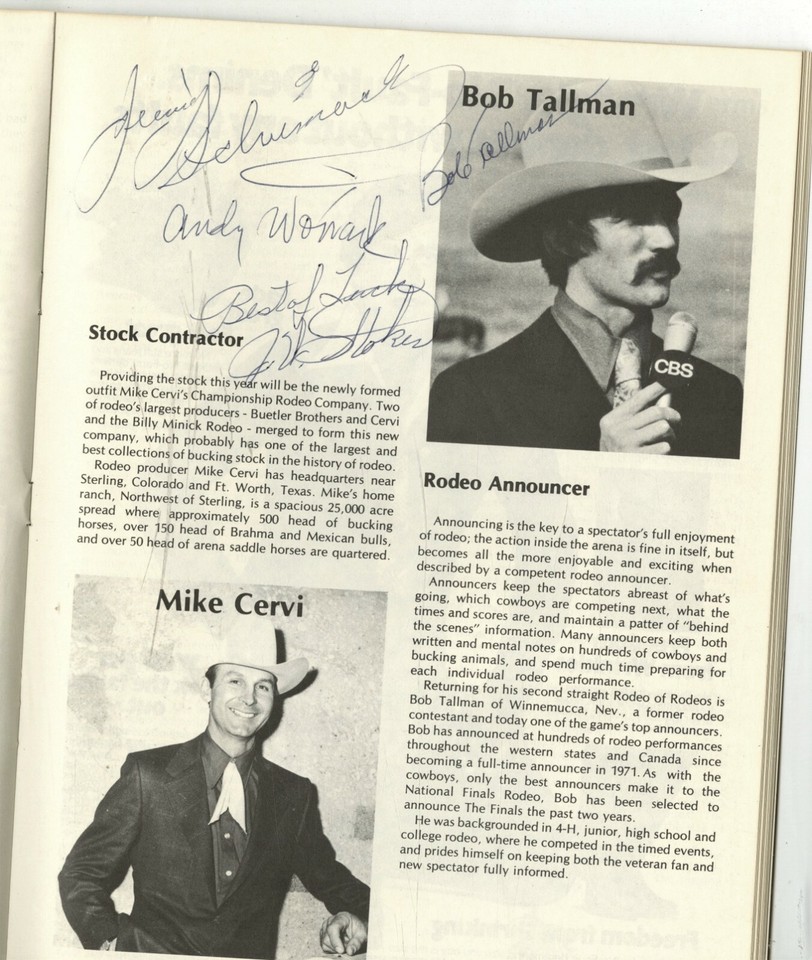 Bob Tallman
Bob Tallman
Andy Womack
Best of Luck
J.W. Stoker
CBS
Stock Contractor
Providing the stock this year will be the newly formed
outfit Mike Cervi's Championship Rodeo Company. Two
of rodeo's largest producers - Buetler Brothers and Cervi
and the Billy Minick Rodeo - merged to form this new
company, which probably has one of the largest and
best collections of bucking stock in the history of rodeo.
Rodeo producer Mike Cervi has headquarters near
Sterling, Colorado and Ft. Worth, Texas. Mike's home
ranch, Northwest of Sterling, is a spacious 25,000 acre
spread where approximately 500 head of bucking
horses, over 150 head of Brahma and Mexican bulls,
and over 50 head of arena saddle horses are quartered.
Mike Cervi
Rodeo Announcer
Announcing is the key to a spectator's full enjoyment
of rodeo; the action inside the arena is fine in itself, but
becomes all the more enjoyable and exciting when
described by a competent rodeo announcer.
Announcers keep the spectators abreast of what's
going, which cowboys are competing next, what the
times and scores are, and maintain a patter of "behind
the scenes" information. Many announcers keep both
written and mental notes on hundreds of cowboys and
bucking animals, and spend much time preparing for
each individual rodeo performance.
Returning for his second straight Rodeo of Rodeos is
Bob Tallman of Winnemucca, Nev., a former rodeo
contestant and today one of the game's top announcers.
Bob has announced at hundreds of rodeo performances
throughout the western states and Canada since
becoming a full-time announcer in 1971. As with the
cowboys, only the best announcers make it to the
National Finals Rodeo, Bob has been selected to
announce The Finals the past two years.
He was backgrounded in 4-H, junior, high school and
college rodeo, where he competed in the timed events,
and prides himself on keeping both the veteran fan and
new spectator fully informed.